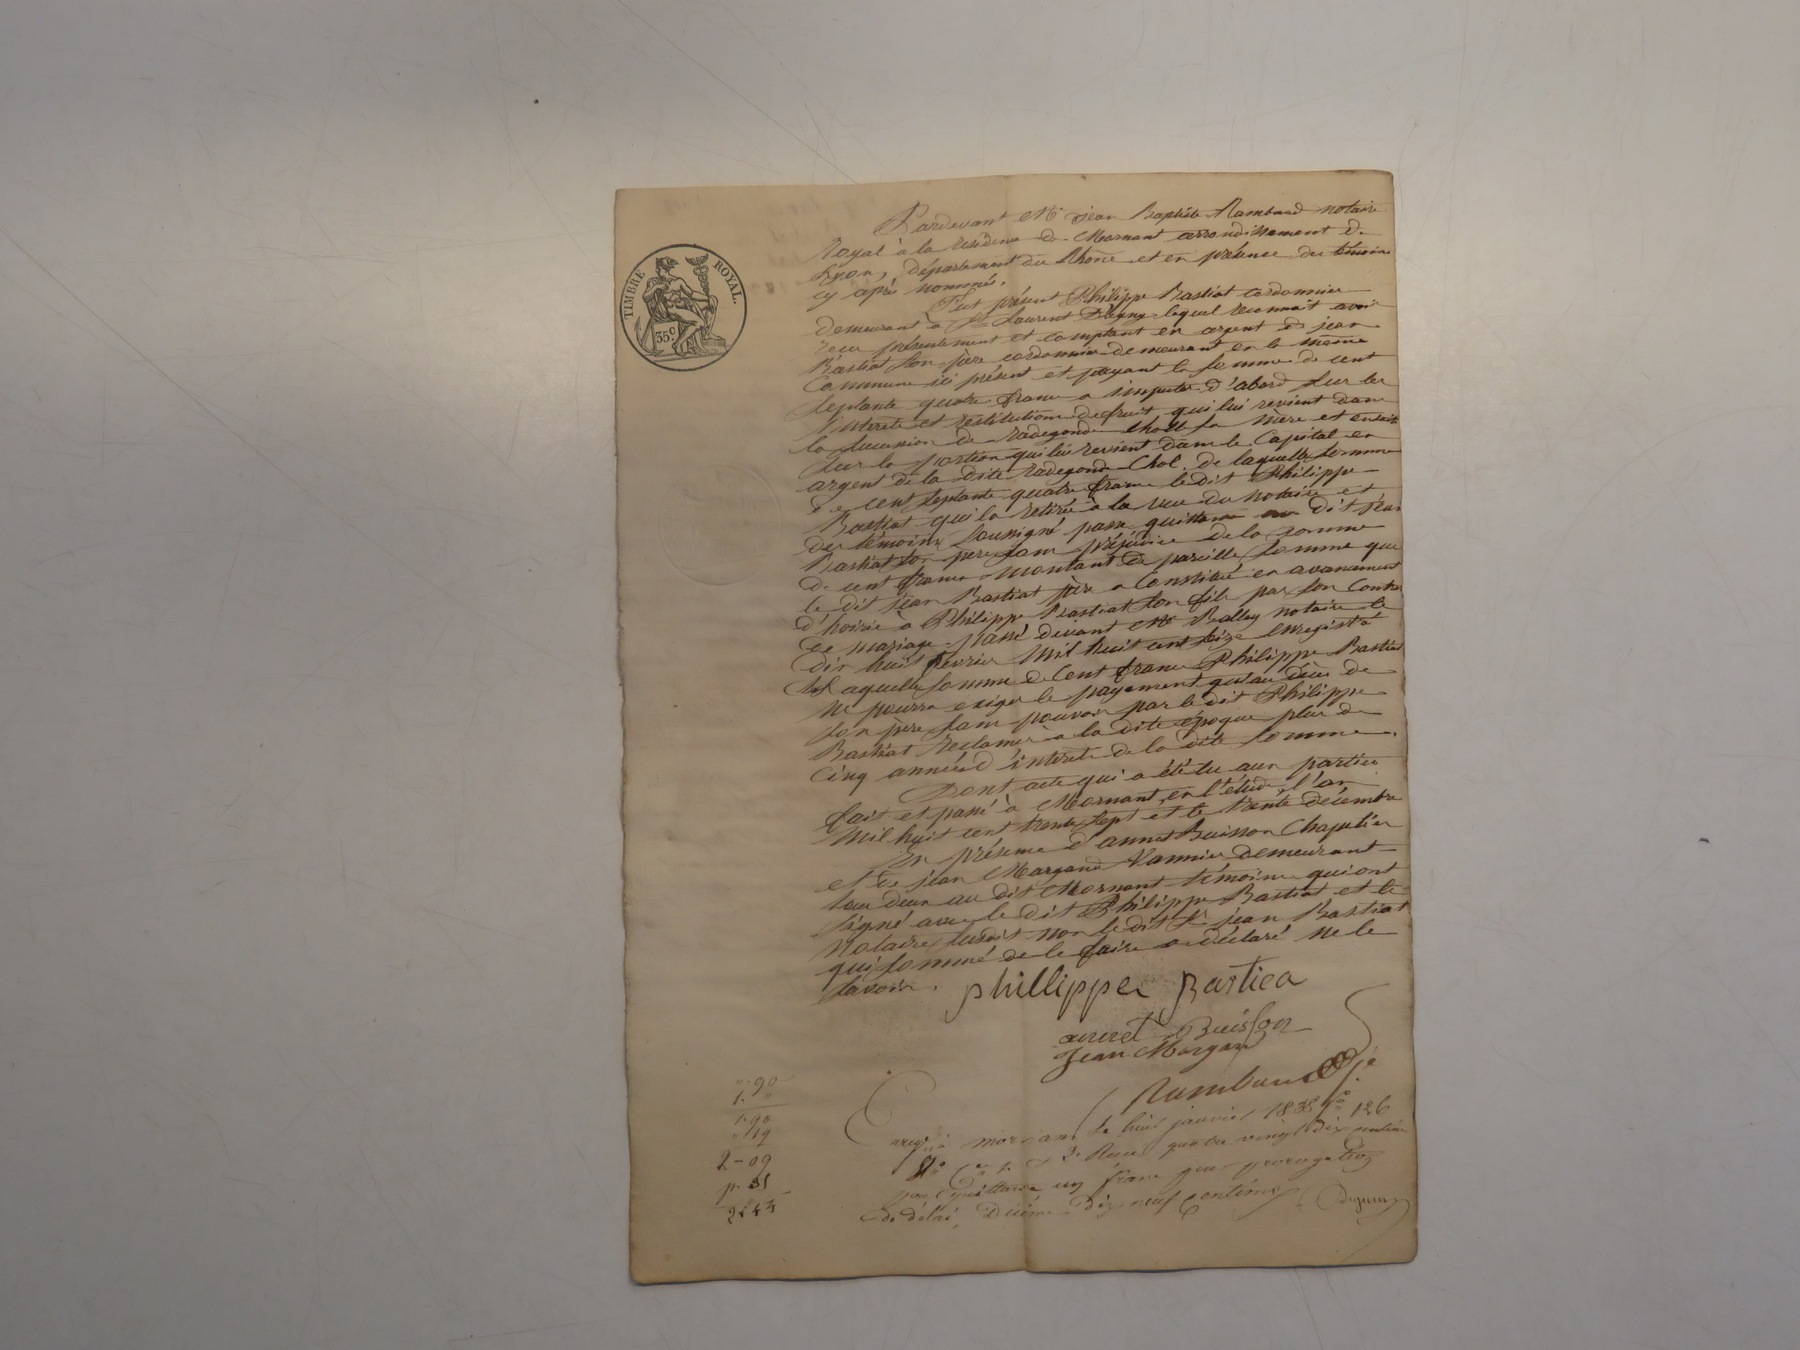 Pardevant Mr Jean Baptiste Rambaud notaire
Royal à la résidence de Mornant arrondissement de
Lyon, département du Rhône et en présence des témoins
cy après nommés.
TIMBRE ROYAL.
35 c
Fut présent Philippe Bastiat cordonnier
demeurant à St Laurent D'agny lequel reconnait avoir
reçu présentement et comptant en argent de jean
Bastiat son père cordonnier demeurant en la même
Commune ici présent et payant la somme de cent
septante quatre francs a imputer d'abord sur les
interets et restitutions de fruit qui lui revient dans
la succession de radegonde Choll sa mère et ensuite
sur la portion qui lui revient dans le Capital en
argent de la dite radegonde Chol. de laquelle somme
de cent septante quatre francs le dit Philippe
Bastiat qui la retirée à la vue du notaire et
des témoins soussigné passe quittance au dit jean
Bastiat son père sans préjudice de la somme
de cent francs montant de pareille somme que
le dit jean Bastiat père a Constitué en avancement
d'hoirie à Philippe Bastiat son fils par son Contrat
de mariage passé devant Mr Balley notaire le
dix huit février mil huit cent seize Enregistré
laquelle somme de Cent francs Philippe Bastiat
ne pourra exiger le payement qu'au décès de
son père sans pouvoir par le dit Philippe
Bastiat reclamer à la dite époque plus de
Cinq années d'interets de la dite somme.
Dont acte qui a été lu aux parties
fait et passé à Mornant en l'étude, l'an
Mil huit cent trente sept et le trente décembre
En présence d'annet Buisson Chapelier
et de jean Margand Vannier demeurant
tous deux au dit Mornant témoins qui ont
signé avec le dit Philippe Bastiat et le
Notaire, susdit non le dit Sr jean Bastiat
qui sommé de le faire a déclaré ne le
savoir.
phillipper Bastiea
annet Buisson
Jean Morgan
Rambaud
1.90
19
2-09
35
2 f 44
Enregé à mornant le huit janvier 1838 fo 126
Ro Ce 1 & 2. Reçu quatre vingt dix centimes
pour quittance un franc pour prorogation
de délai, Décime dix neuf centimes